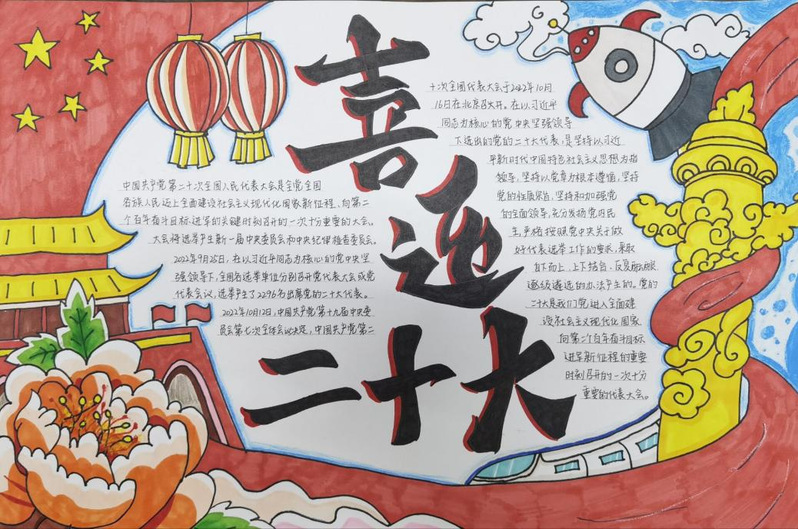 喜迎二十大
中国共产党第二十次全国人民代表大会是全党全国
各族人民迈上全面建设社会主义现代化国家新征程、向第二
个百年奋斗目标进军的关键时刻召开的一次十分重要的大会。
大会将选举产生新一届中央委员会和中央纪律检查委员会。
2022年9月25日,在以习近平同志为核心的党中央坚
强领导下,全国各选举单位分别召开党代表大会或党
代表会议,选举产生了2296名出席党的二十大代表。
2022年10月12日,中国共产党第十九届中央委
员会第七次全体会议决定,中国共产党第二
十次全国代表大会于2022年10月
16日在北京召开。在以习近平
同志为核心的党中央坚强领导
下选出的党的二十大代表,是坚持以习近
平新时代中国特色社会主义思想为指
领导,坚持以党章为根本遵循,坚持
党的性质宗旨,坚持和加强党
的全面领导,充分发扬党内民
主,严格按照党中央关于做
好代表选举工作的要求,采取
自下而上、上下结合、反复
逐级遴选的办法产生的。党的
二十大是我们党进入全面建
设社会主义现代化国家
向第二个百年奋斗目标
进军新征程的重要
时刻召开的一次十分
重要的代表大会。